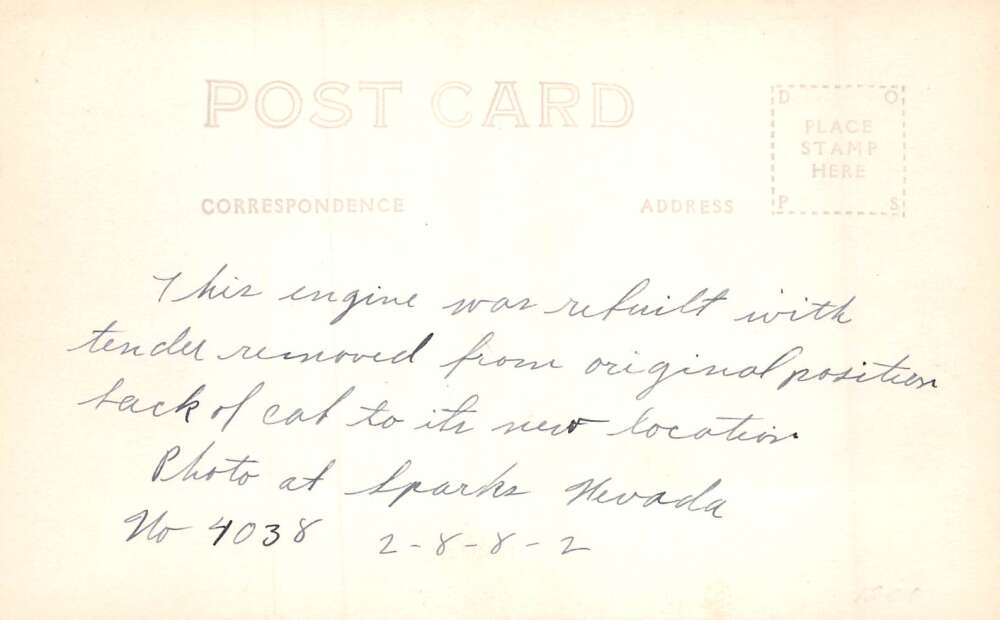 POST CARD
D O
PLACE
STAMP
HERE
P S
CORRESPONDENCE ADDRESS
This engine was rebuilt with
tender removed from original position
back of cab to its new location
Photo at Sparks Nevada
No 4038 2-8-8-2